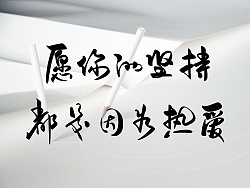 愿你的坚持
都是因为热爱